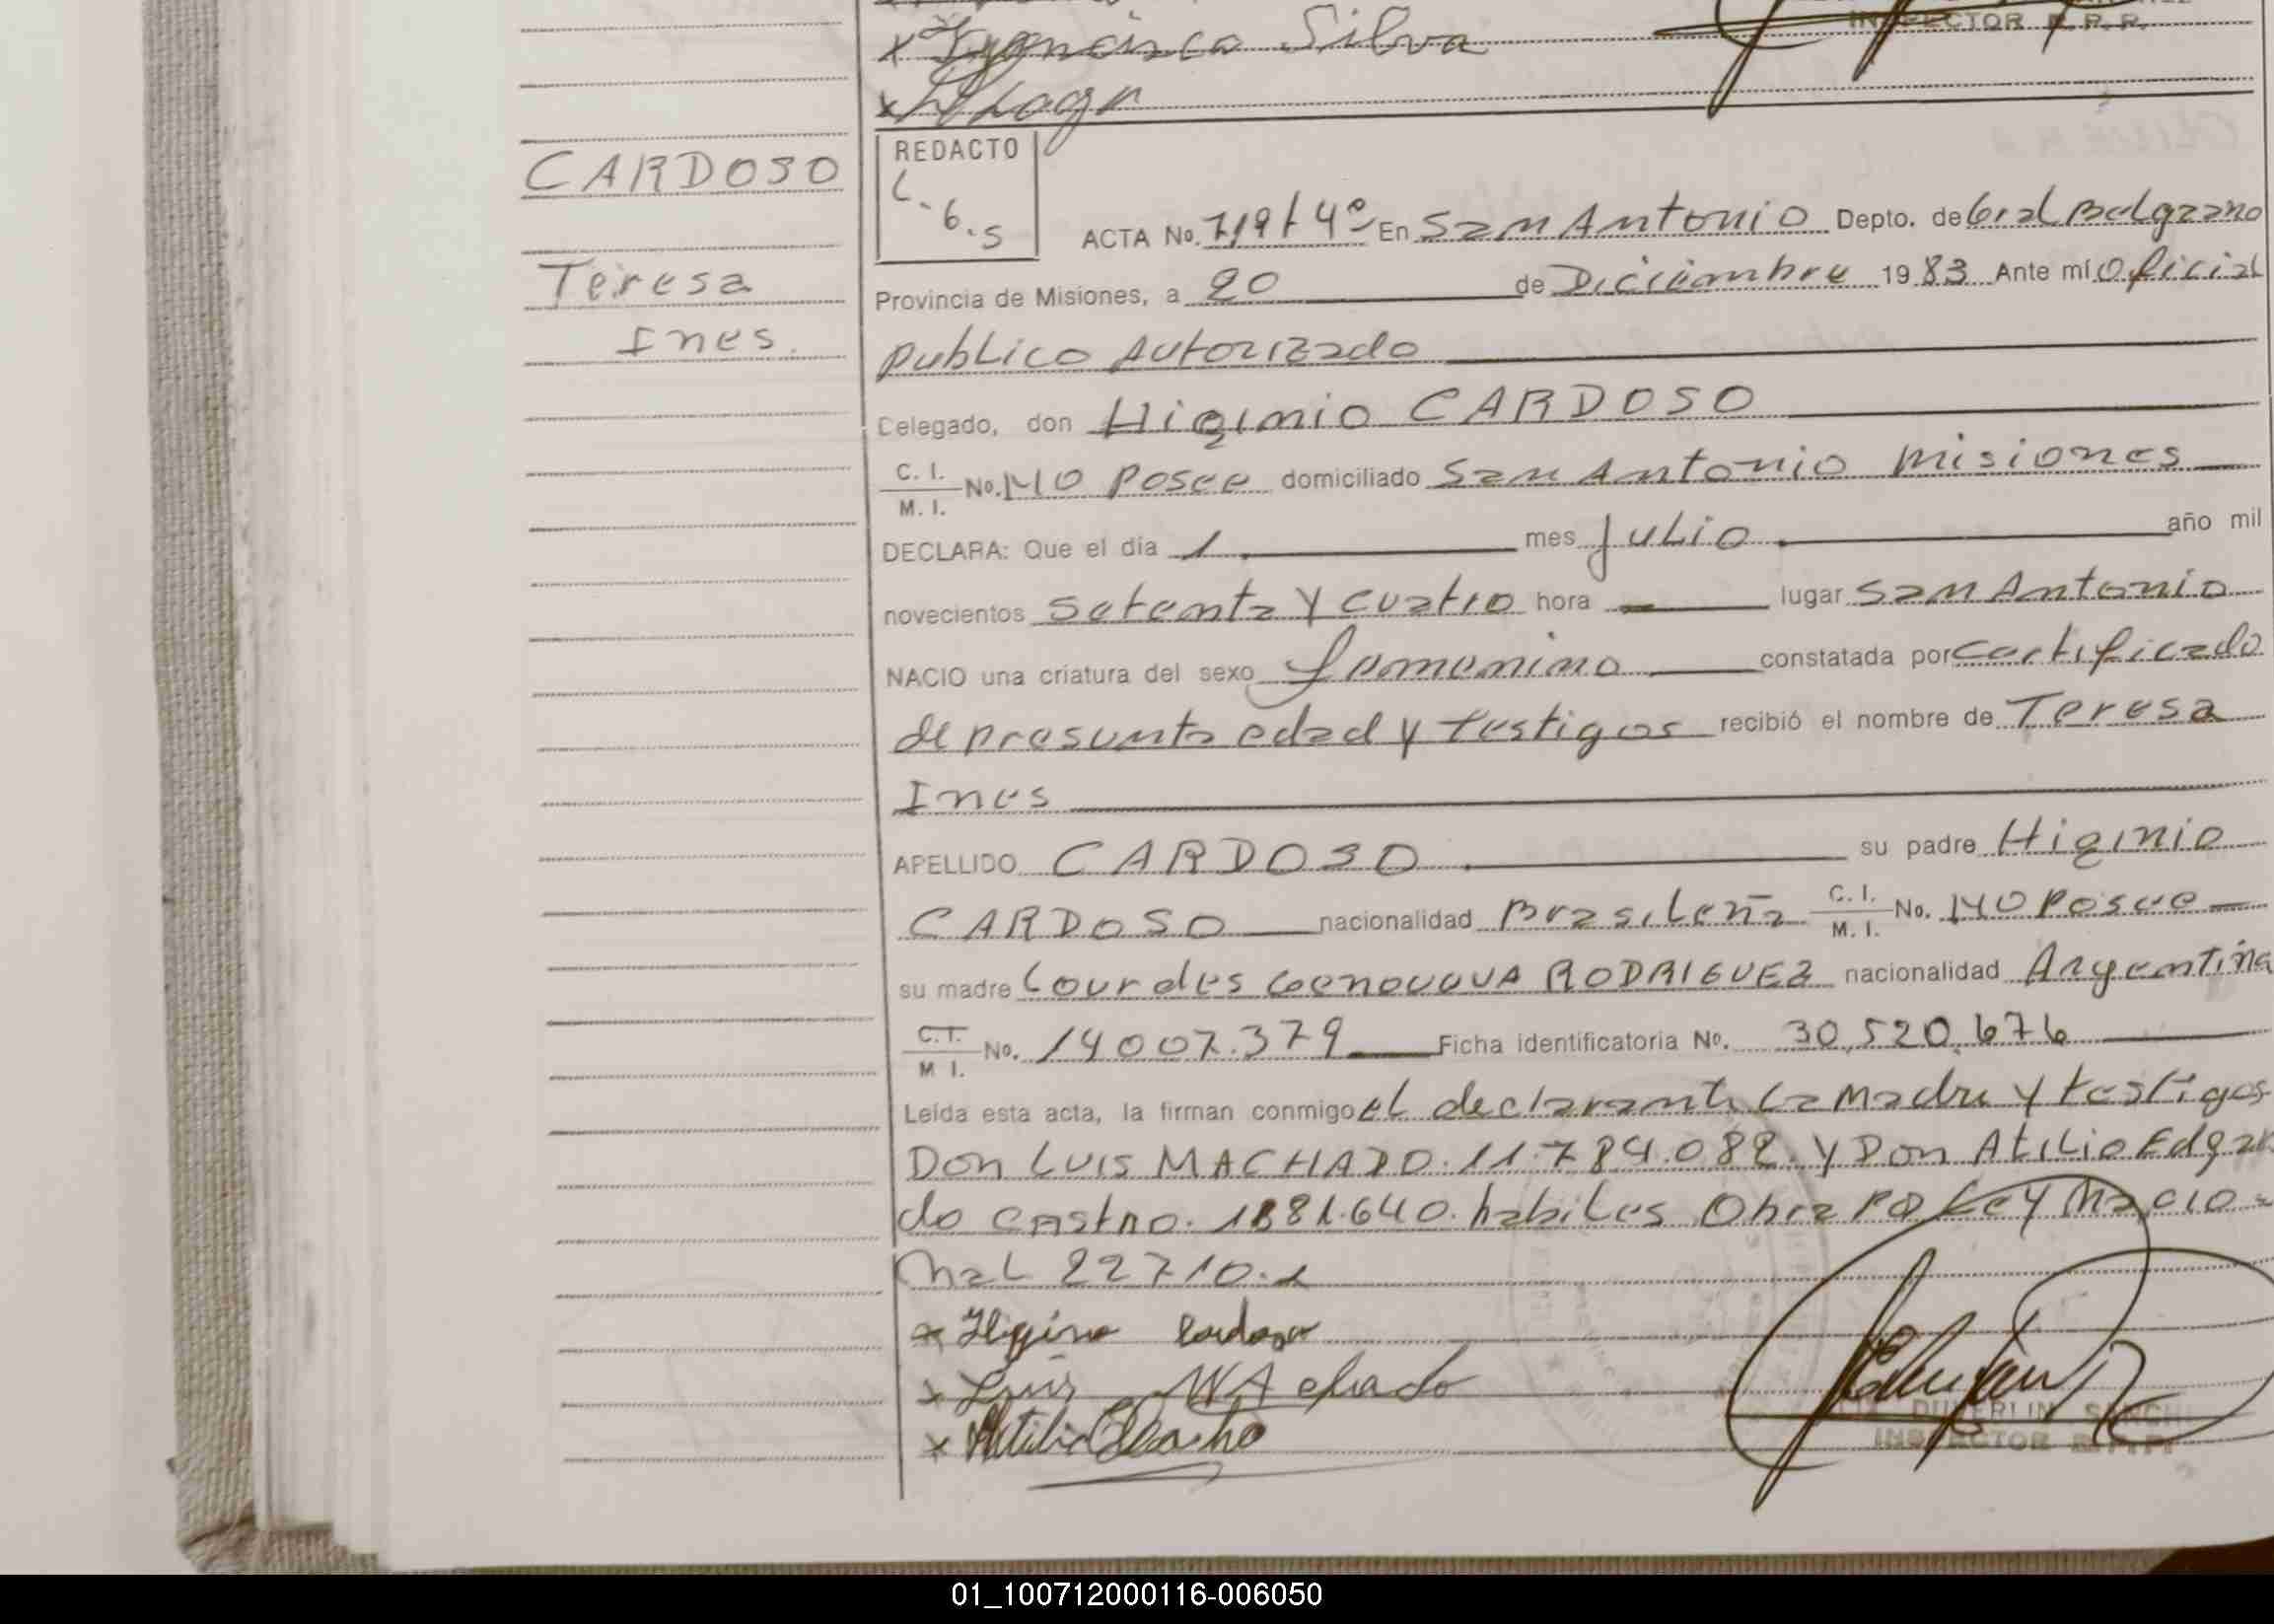 Silva
INSPECTOR R. P. P.
CARDOSO
Teresa
Ines.
REDACTO
L.G.S
ACTA No. 719 t 4º En San Antonio Depto. de Gral Belgrano
Provincia de Misiones, a 20 de Diciembre 1983 Ante mí Oficial
Publico Autorizado
Celegado, don Higinio CARDOSO
C. I. / M. I. No. NO Posee domiciliado San Antonio Misiones
DECLARA: Que el día 1 mes Julio año mil
novecientos setenta y cuatro hora — lugar San Antonio
NACIO una criatura del sexo femenino constatada por certificado
de presunta edad y testigos recibió el nombre de Teresa
Ines
APELLIDO CARDOSO su padre Higinio
CARDOSO nacionalidad Brasileña C. I. / M. I. No. NO Posee
su madre Lourdes Genoveva RODRIGUEZ nacionalidad Argentina
C. I. / M I. No. 14007.379 Ficha identificatoria No. 30,520,676
Leída esta acta, la firman conmigo el declarante la Madre y testigos
Don LUIS MACHADO. 11.784.082. y Don Atilio Edgar
do Castro. 1881.640. habiles Obra PD Ley Nacio=
nal 22710.
Higino Cardoso
Luis MAchado
Atilio E Castro
INSPECTOR R. P. P.
01_100712000116-006050